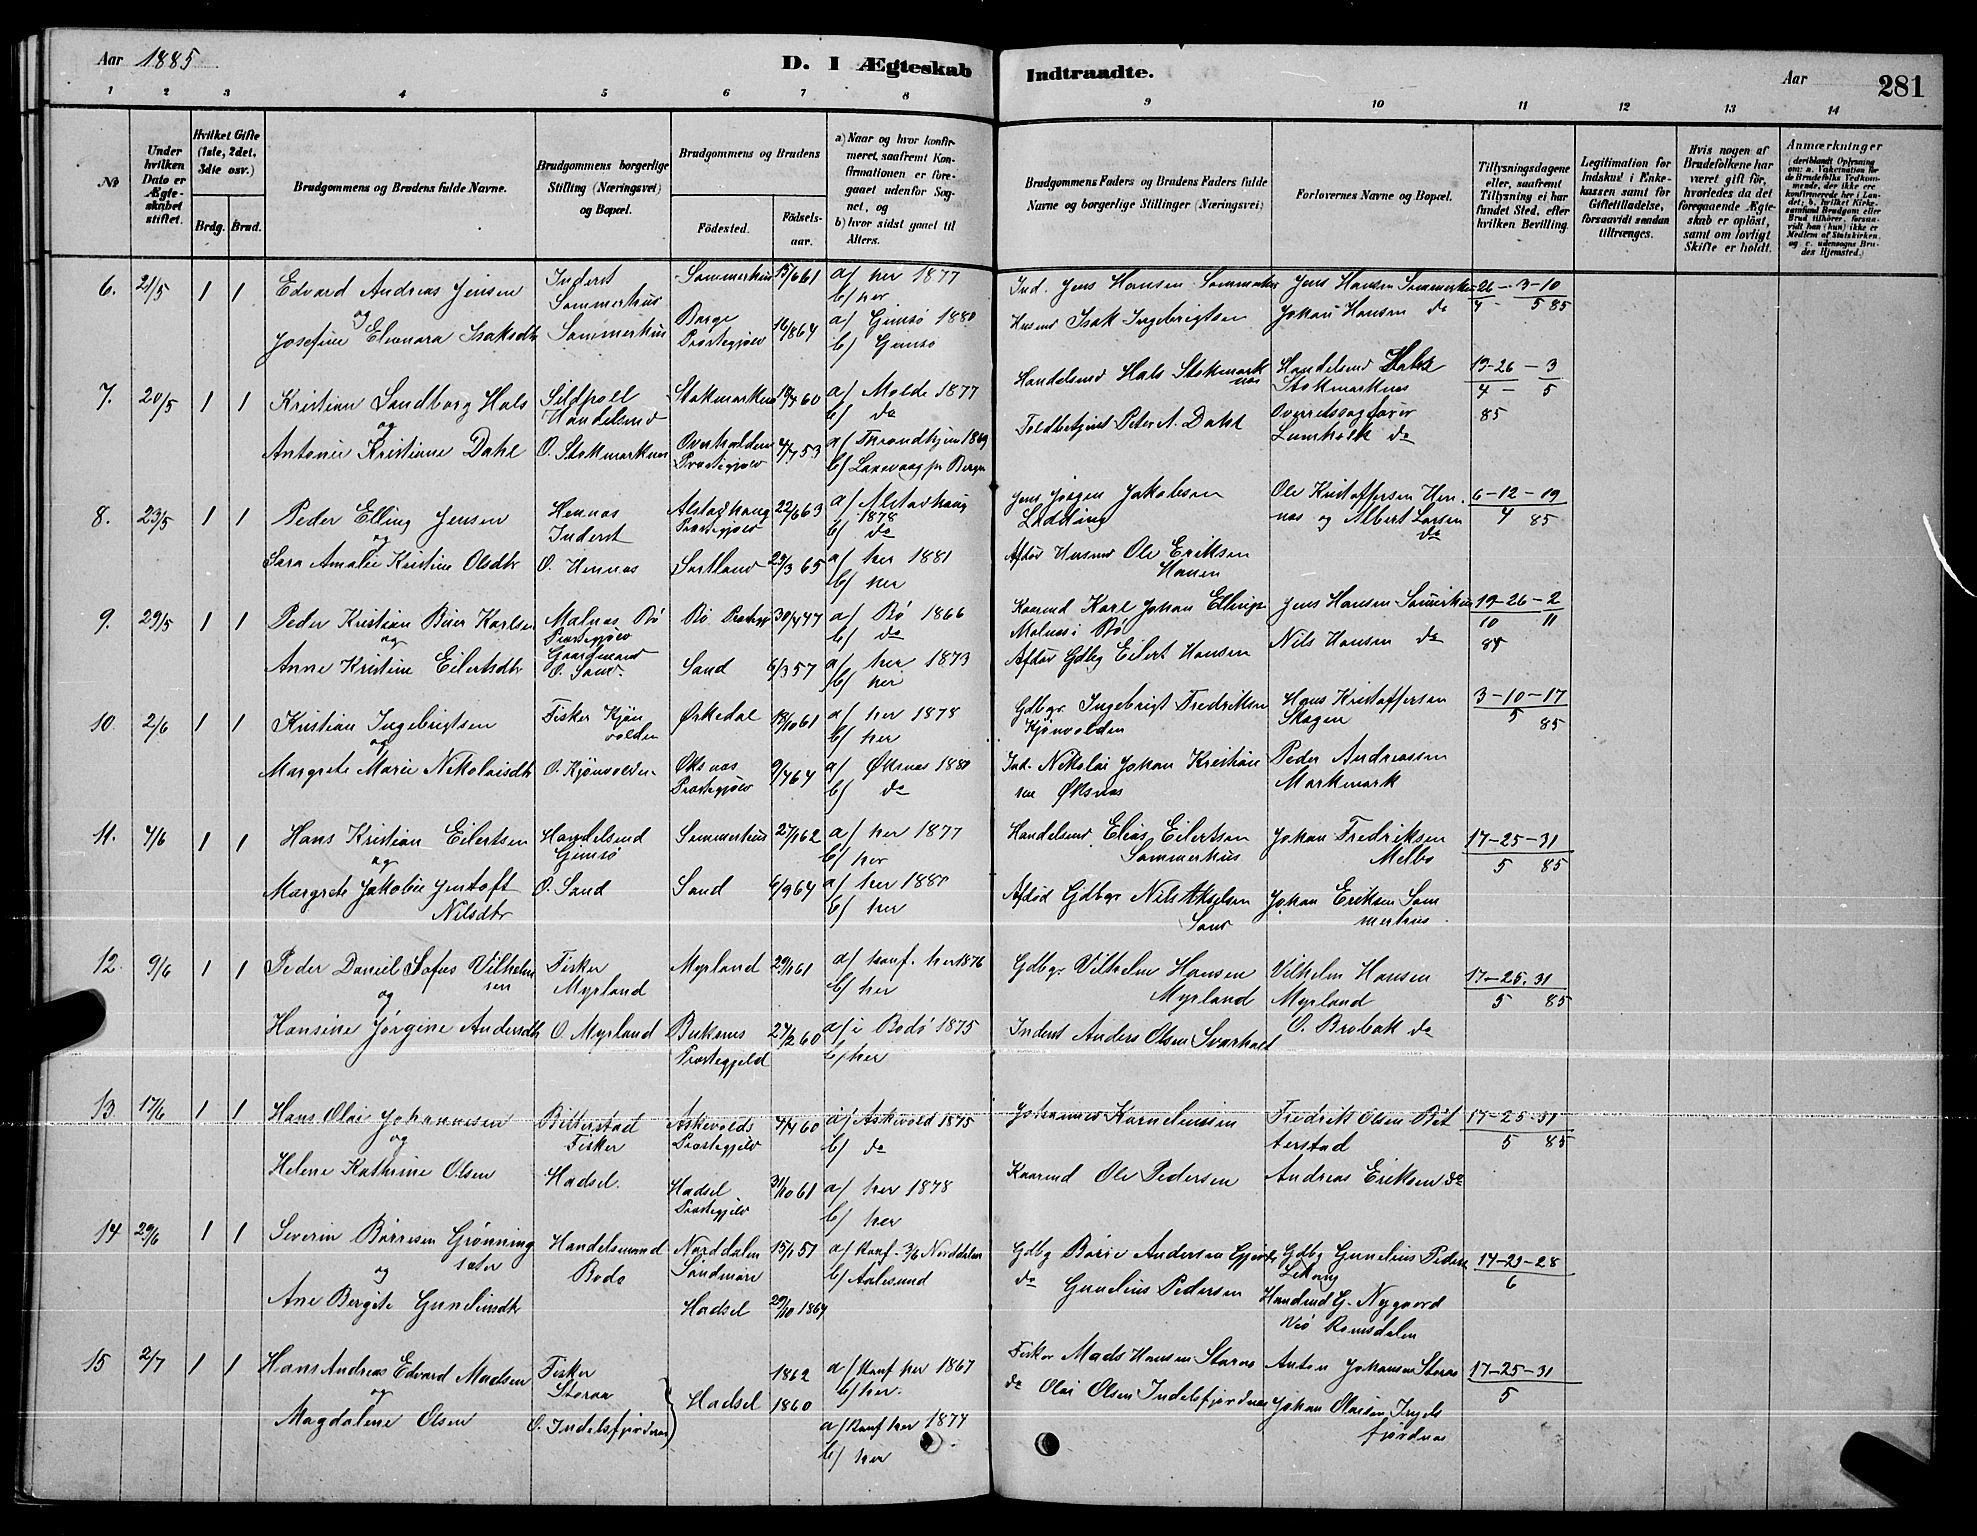 Aar 1885
D. 1 Ægteskab
Indtraadte.
Aar
281
1 2 3 4 5 6 7 8 9 10 11 12 13 14
No
Under hvilken Dato er Ægteskabet stiftet.
Hvilket Gifte (1ste, 2det, 3die osv.)
Brdg. Brud.
Brudgommens og Brudens fulde Navne.
Brudgommens borgerlige Stilling (Næringsvei) og Bopæl.
Brudgommens og Brudens
Fødested.
Fødselsaar.
a) Naar og hvor konfirmeret, saafremt Konfirmationen er foregaaet udenfor Sognet, og
b) hvor sidst gaaet til Alters.
Brudgommens Faders og Brudens Faders fulde Navne og borgerlige Stillinger (Næringsvei)
Forlovernes Navne og Bopæl.
Tillysningsdagene eller, saafremt Tillysning ei har fundet Sted, efter hvilken Bevilling.
Legitimation for Indskud i Enkekassen samt for Giftetilladelse, forsaavidt saadan tiltrænges.
Hvis nogen af Brudefolkene har været gift før, hvorledes da det foregaaende Ægteskab er opløst, samt om lovligt Skifte er holdt.
Anmærkninger
(deriblandt Oplysning om: a. Vakcination for de Brudefolks Vedkommende, der ikke ere konfirmerede her i Landet; b. hvilket Kirkesamfund Brudgom eller Brud tilhører, forsaavidt han (hun) ikke er Medlem af Statskirken, og c. udensogns Brudes Hjemsted.)
6. 21/5 1 1 Edvard Andreas Jensen Inderst Sommerhus Sommerhus 15/6 61 a/ her 1877 b/ her Ind. Jens Hansen Jens Hansen 26-3-10
og
Josefine Eleonora Isaksdtr Sommerhus Borge Prestegjæld 16/8 64 a/ Gimsø 1880 b/ Gimsø Husmd Isak Ingebrigtsen Johan Hansen do 4 - 5 85
7. 20/5 1 1 Kristian Sandborg Hals Sildpoll Handelsmd Stokmarknes 60 a/ Molde 1877 b/ do Handelsmd Hals Stokmarknes Handelsmd Hals Stokmarknes 19-26-3
4 - 5
85
og
Antonie Kristiane Dahl O. Stokmarknes Overhalden Prestegjæld 4/7 53 a/ Throndhjem 1869 b/ Laxevaag pr Bergen Toldbetjent Peter A. Dahl Overretssagfører do
8. 23/5 1 1 Peder Elling Jensen Hennes Inderst Alstadhaug Prestegjæld 22/6 63 a/ Alstadhaug 1878 b/ do Jens Jørgen Jakobsen Ole Kristoffersen Hennes og Albert Larsen do 6-12-19
4 85
og
Sara Amalie Kristine Olsdtr O. Hennes Sortland 23/3 65 a/ her 1881 b/ her Afdød Husmd Ole Eriksen
9. 29/5 1 1 Peder Kristian Karlsen Malnes Bø Prestegjæld Gaardmand Bø Prestegj 30/4 47 a/ Bø 1866 b/ do Kaarmd Karl Johan Malnes i Bø Jens Hansen 19-26-2
10 11
og
Anne Kristine Eilertsdtr O. Sand Sand 6/3 57 a/ her 1873 b/ her Afdød Gdbg Eilert Hansen Nils Hansen do
10. 2/6 1 1 Kristian Ingebrigtsen Fisker Kjønvolden Ørkedal 18/10 61 a/ her 1878 b/ her Gdbgr. Ingebrigt Fredriksen Kjønvolden Hans Kristoffersen Skagen 3-10-17
5 85
og
Margrete Marie Nikolaisdtr O. Kjønvolden Øksnes Prestegjæld 9/4 64 a/ Øksnes 1880 b/ do Ind. Nikolai Johan Kristiansen Øksnes Peder Andreassen Markmark
11. 4/6 1 1 Hans Kristian Eilertsen Handelsmd Gimsø Sommerhus 27/1 62 a/ her 1877 b/ her Handelsmd Elias Eilertsen Sommerhus Johan Fredriksen Melbo 17-25-31
5 85
og
Margrete Jakobie Jentoft Nilsdtr O. Sand Sand 6/9 64 a/ her 1880 b/ her Afdød Gdbgr Nils Akselsen Sand Johan Eriksen Sommerhus
12. 9/6 1 1 Peder Daniel Sofus Vilhelmsen Fisker Myrland Myrland 29/1 61 a/ konf. her 1876 b/ her Gdbgr Vilhelm Hansen Myrland Vilhelm Hansen Myrland 17-25-31
5 85
og
Hansine Jørgine Andersdtr O. Myrland Buksnes Prestegjeld 27/2 60 a/ i Bodø 1875 b/ her Inderst Anders Olsen O. Brobak do
13. 17/6 1 1 Hans Olai Johannesen Bitterstad Fisker Askevolds Prestegjeld 4/4 60 a/ Askevold 1875 b/ do Johannes Korneliussen Fredrik Olsen Bitterstad 17-25-31
5 85
og
Helene Kathrine Olsen Hadsel. Hadsel Prestegjeld 31/10 61 a/ her 1878 b/ her Kaarmd Ole Pedersen Andreas Eriksen do
14 29/6 1 1 Severin Børresen Grønningsæter Handelsmand Bodø Norddalen Søndmøre 15/1 57 a/ konf. Norddalen b/ Aalesund Gdbg Børre Andersen Gdbg Gunelius Pedersen 14-21-28
6
og
Ane Bergite Guneliusdtr Hadsel 29/10 1864 do Gunelius Pedersen Handmd G. Nygaard Romsdalen
15 2/7 1 1 Hans Andreas Edvard Madsen Fisker Storaa Hadsel 1862 a/ konf her 1867 b/ her. Fisker Mads Hansen Anton Johansen 17-25-31
5
og
Magdalene Olsen O. Indelsfjordnes 1860 a/ konf her 1874 b/ her do Olai Olsen Indelsfjordnes Johan Olaisen